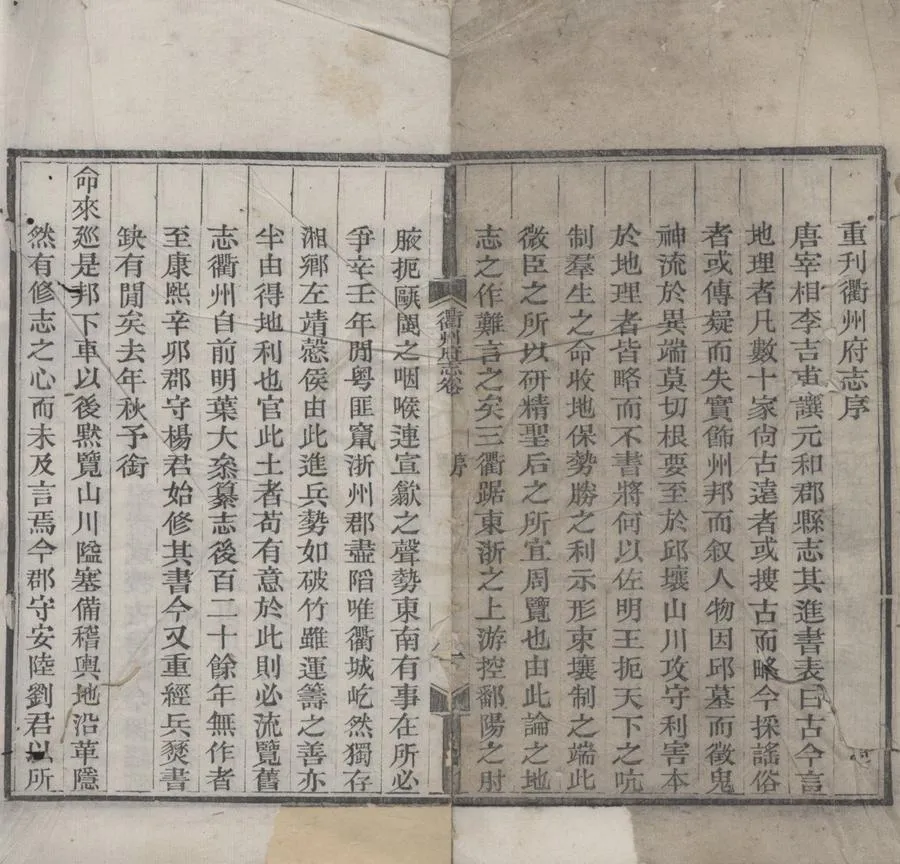 重刊衢州府志序
唐宰相李吉甫譔元和郡縣志其進書表曰古今言
地理者凡數十家尙古遠者或搜古而略今採謠俗
者或傳疑而失實飾州邦而叙人物因邱墓而徵鬼
神流於異端莫切根要至於邱壤山川攻守利害本
於地理者皆略而不書將何以佐明王扼天下之吭
制羣生之命收地保勢勝之利示形束壤制之端此
微臣之所以硏精聖后之所宜周覽也由此論之地
志之作難言之矣三衢踞東浙之上游控鄱陽之肘
衢州府志卷 序 一
腋扼甌閩之咽喉連宣歙之聲勢東南有事在所必
爭辛壬年閒粵匪竄浙州郡盡陷唯衢城屹然獨存
湘鄉左靖慤侯由此進兵勢如破竹雖運籌之善亦
半由得地利也官此土者苟有意於此則必流覽舊
志衢州自前明葉大叅纂志後百二十餘年無作者
至康熙辛卯郡守楊君始修其書今又重經兵燹書
缺有閒矣去年秋予銜
命來廵是邦下車以後默覽山川隘塞備稽輿地沿革隱
然有修志之心而未及言焉今郡守安陸劉君以所